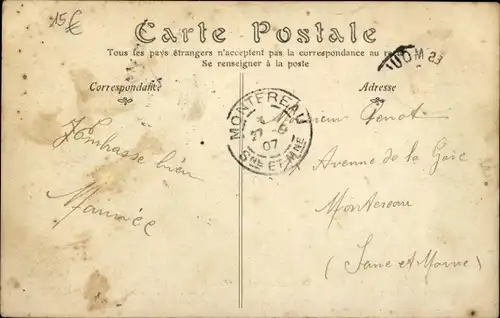 15€
Carte Postale
Tous les pays étrangers n'acceptent pas la correspondance au
Se renseigner à la poste
Correspondance
Adresse
MONTEREAU
27
07
SNE ET MNE
bien
Monsieur Genot
Avenue de la Gare
Montereau
(Seine et Marne)